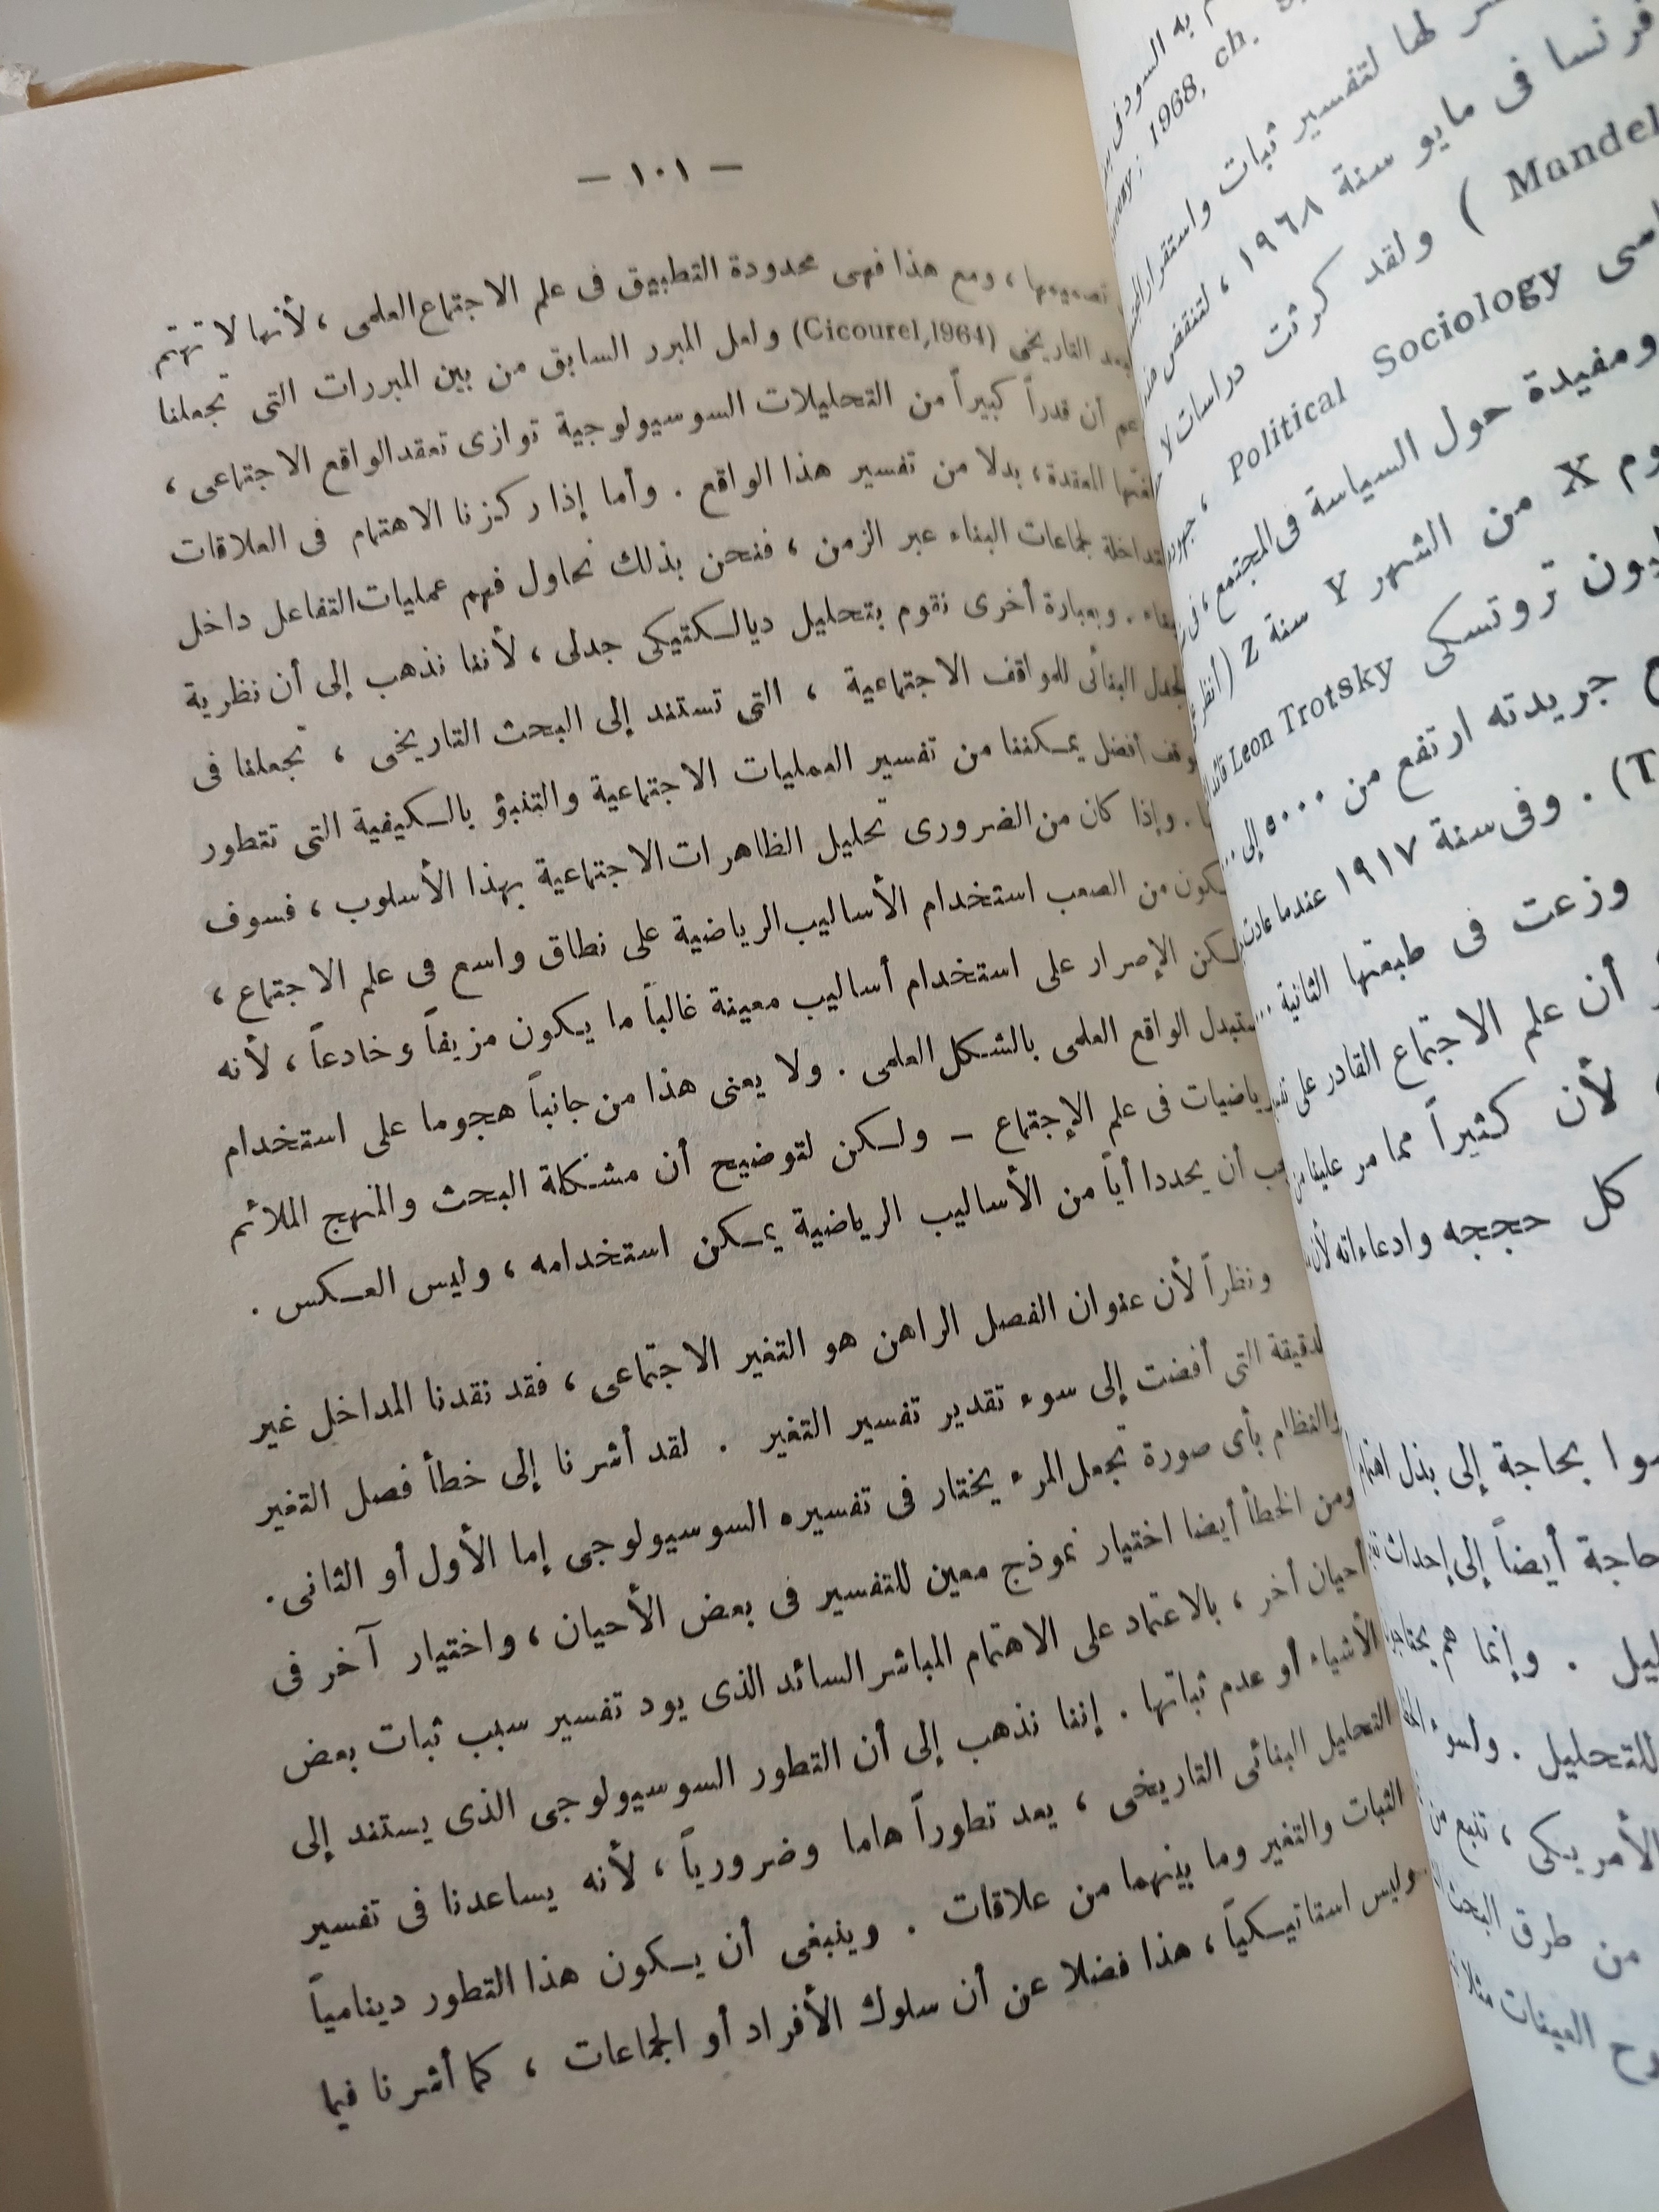 — ١٠١ —
تصميمها ، ومع هذا فهى محدودة التطبيق فى علم الاجتماع العلمى ، لأنها لا تهتم
التاريخى (Cicourel,1964) ولعل المبرر السابق من بين المبررات التى تجعلنا
أن قدراً كبيراً من التحليلات السوسيولوجية توازى تعقد الواقع الاجتماعى ،
المعقدة ، بدلا من تفسير هذا الواقع . وأما إذا ركزنا الاهتمام فى العلاقات
لجماعات البناء عبر الزمن ، فنحن بذلك نحاول فهم عمليات التفاعل داخل
وبعبارة أخرى نقوم بتحليل ديالكتيكى جدلى ، لأننا نذهب إلى أن نظرية
البنائى للمواقف الاجتماعية ، التى تستند إلى البحث التاريخى ، تجعلنا فى
أفضل يمكننا من تفسير العمليات الاجتماعية والتنبؤ بالكيفية التى تتطور
. وإذا كان من الضرورى تحليل الظاهرات الاجتماعية بهذا الأسلوب ، فسوف
يكون من الصعب استخدام الأساليب الرياضية على نطاق واسع فى علم الاجتماع ،
لكن الإصرار على استخدام أساليب معينة غالباً ما يكون مزيفاً وخادعاً ، لأنه
يستبدل الواقع العلمى بالشكل العلمى . ولا يعنى هذا من جانباً هجوما على استخدام
الرياضيات فى علم الإجتماع – ولكن لتوضيح أن مشكلة البحث والمنهج الملائم
يجب أن يحددا أياً من الأساليب الرياضية يمكن استخدامه ، وليس العكس .
ونظراً لأن عنوان الفصل الراهن هو التغير الاجتماعى ، فقد نقدنا المداخل غير
الدقيقة التى أفضت إلى سوء تقدير تفسير التغير . لقد أشرنا إلى خطأ فصل التغير
والنظام بأى صورة تجعل المرء يختار فى تفسيره السوسيولوجى إما الأول أو الثانى .
ومن الخطأ أيضا اختيار نموذج معين للتفسير فى بعض الأحيان ، واختيار آخر فى
أحيان أخر ، بالاعتماد على الاهتمام المباشر السائد الذى يود تفسير سبب ثبات بعض
الأشياء أو عدم ثباتها . إننا نذهب إلى أن التطور السوسيولوجى الذى يستند إلى
التحليل البنائى التاريخى ، يعد تطوراً هاما وضرورياً ، لأنه يساعدنا فى تفسير
الثبات والتغير وما بينهما من علاقات . وينبغى أن يكون هذا التطور دينامياً
وليس استاتيكياً ، هذا فضلا عن أن سلوك الأفراد أو الجماعات ، كما أشرنا فيما
1968, ch.
لها لتفسير ثبات واستقرار
فرنسا فى مايو سنة ١٩٦٨ ، لتنقض
Mandel ) ولقد كرثت دراسات
Political Sociology ، جهود
ومفيدة حول السياسة فى المجتمع ، فى
X من الشهر Y سنة Z (أنظر
ليون تروتسكى Leon Trotsky قائد
جريدته ارتفع من ٥٠٠٠ إلى
. وفى سنة ١٩١٧ عندما عادت
وزعت فى طبعتها الثانية
أن علم الاجتماع القادر على
لأن كثيراً مما مر علينا من
كل حججه وادعاءاته لأن
بحاجة إلى بذل اهتمام
حاجة أيضاً إلى إحداث
. وإنما هم يحتاجون
للتحليل . ولسوء الحظ
الأمريكى ، تنبع من
من طرق البحث
العينات مثلا